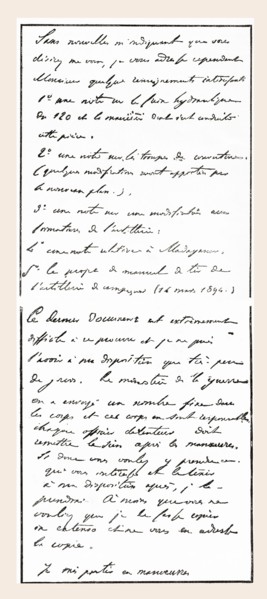 Sans nouvelles m'indiquant que vous
désirez me voir, je vous adresse cependant
Monsieur quelques renseignements intéressants
1º une note sur le frein hydraulique
du 120 et la manière dont s'est conduite
cette pièce.
2º une note sur les troupes de couverture.
(quelques modifications seront apportées par
le nouveau plan.)
3º une note sur une modification aux
formations de l'artillerie:
4º une note relative à Madagascar.
5º le projet de manuel de tir de
l'artillerie de campagne (14 mars 1894.)
Ce dernier document est extrêmement
difficile à se procurer et je ne puis
l'avoir à ma disposition que très peu
de jours. Le ministère de la guerre
en a envoyé un nombre fixe dans
les corps et ces corps en sont responsables
chaque officier détenteur doit
remettre le sien après les manœuvres.
Si donc vous voulez y prendre ce
qui vous intéresse et le tenir
à ma disposition après, je le
prendrai. A moins que vous ne
vouliez que je le fasse copier
in extenso et ne vous en adresse
la copie.
Je vais partir en manœuvres